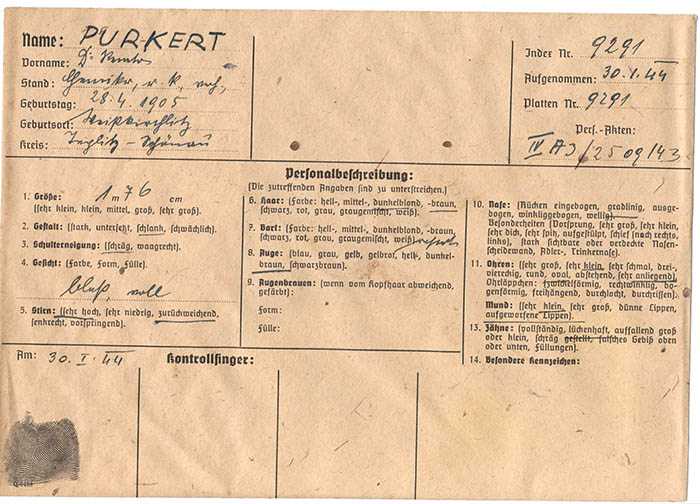 Name: PURKERT
Vorname: Dr.
Stand: Chemiker, r. k., verh.,
Geburtstag: 28.4. 1905
Geburtsort: Weißkirchlitz
Kreis: Teplitz - Schönau
Index Nr. 9291
Aufgenommen: 30.1.44
Platten Nr. 9291
Pers.-Akten:
IV A3/2509/43
Personalbeschreibung:
(Die zutreffenden Angaben sind zu unterstreichen.)
1. Größe: 1 m 76 cm
(sehr klein, klein, mittel, groß, sehr groß).
2. Gestalt: (stark, untersetzt, schlank, schwächlich).
3. Schulterneigung: (schräg, waagrecht).
4. Gesicht: (Farbe, Form, Fülle).
blaß, voll
5. Stirn: (sehr hoch, sehr niedrig, zurückweichend,
senkrecht, vorspringend).
6. Haar: (Farbe: hell-, mittel-, dunkelblond, -braun,
schwarz, rot, grau, graugemischt, weiß).
7. Bart: (Farbe: hell-, mittel-, dunkelblond, -braun,
schwarz, rot, grau, graugemischt, weiß)
8. Auge: (blau, grau, gelb, gelbrot, hell-, dunkel-
braun, schwarzbraun).
9. Augenbrauen: (wenn vom Kopfhaar abweichend,
gefärbt):
Form:
Fülle:
10. Nase: (Rücken eingebogen, gradlinig, ausge-
bogen, winkliggebogen, wellig).
Besonderheiten (Vorsprung, sehr groß, sehr klein,
sehr dick, sehr spitz, aufgestülpt, schief (nach rechts,
links), stark sichtbare oder verdeckte Nasen-
scheidewand, Adler-, Trinkernase).
11. Ohren: (sehr groß, sehr klein, sehr schmal, drei-,
viereckig, rund, oval, abstehend, sehr anliegend)
Ohrläppchen: (zwickelförmig, rechtwinklig, bo-
genförmig, freihängend, durchlocht, durchrissen).
Mund: (sehr klein, sehr groß, dünne Lippen,
aufgeworfene Lippen).
13. Zähne: (vollständig, lückenhaft, auffallend groß
oder klein, schräg gestellt, falsches Gebiß oben
oder unten, Füllungen).
14. Besondere Kennzeichen:
Am: 30. I. 44
Kontrollfinger: